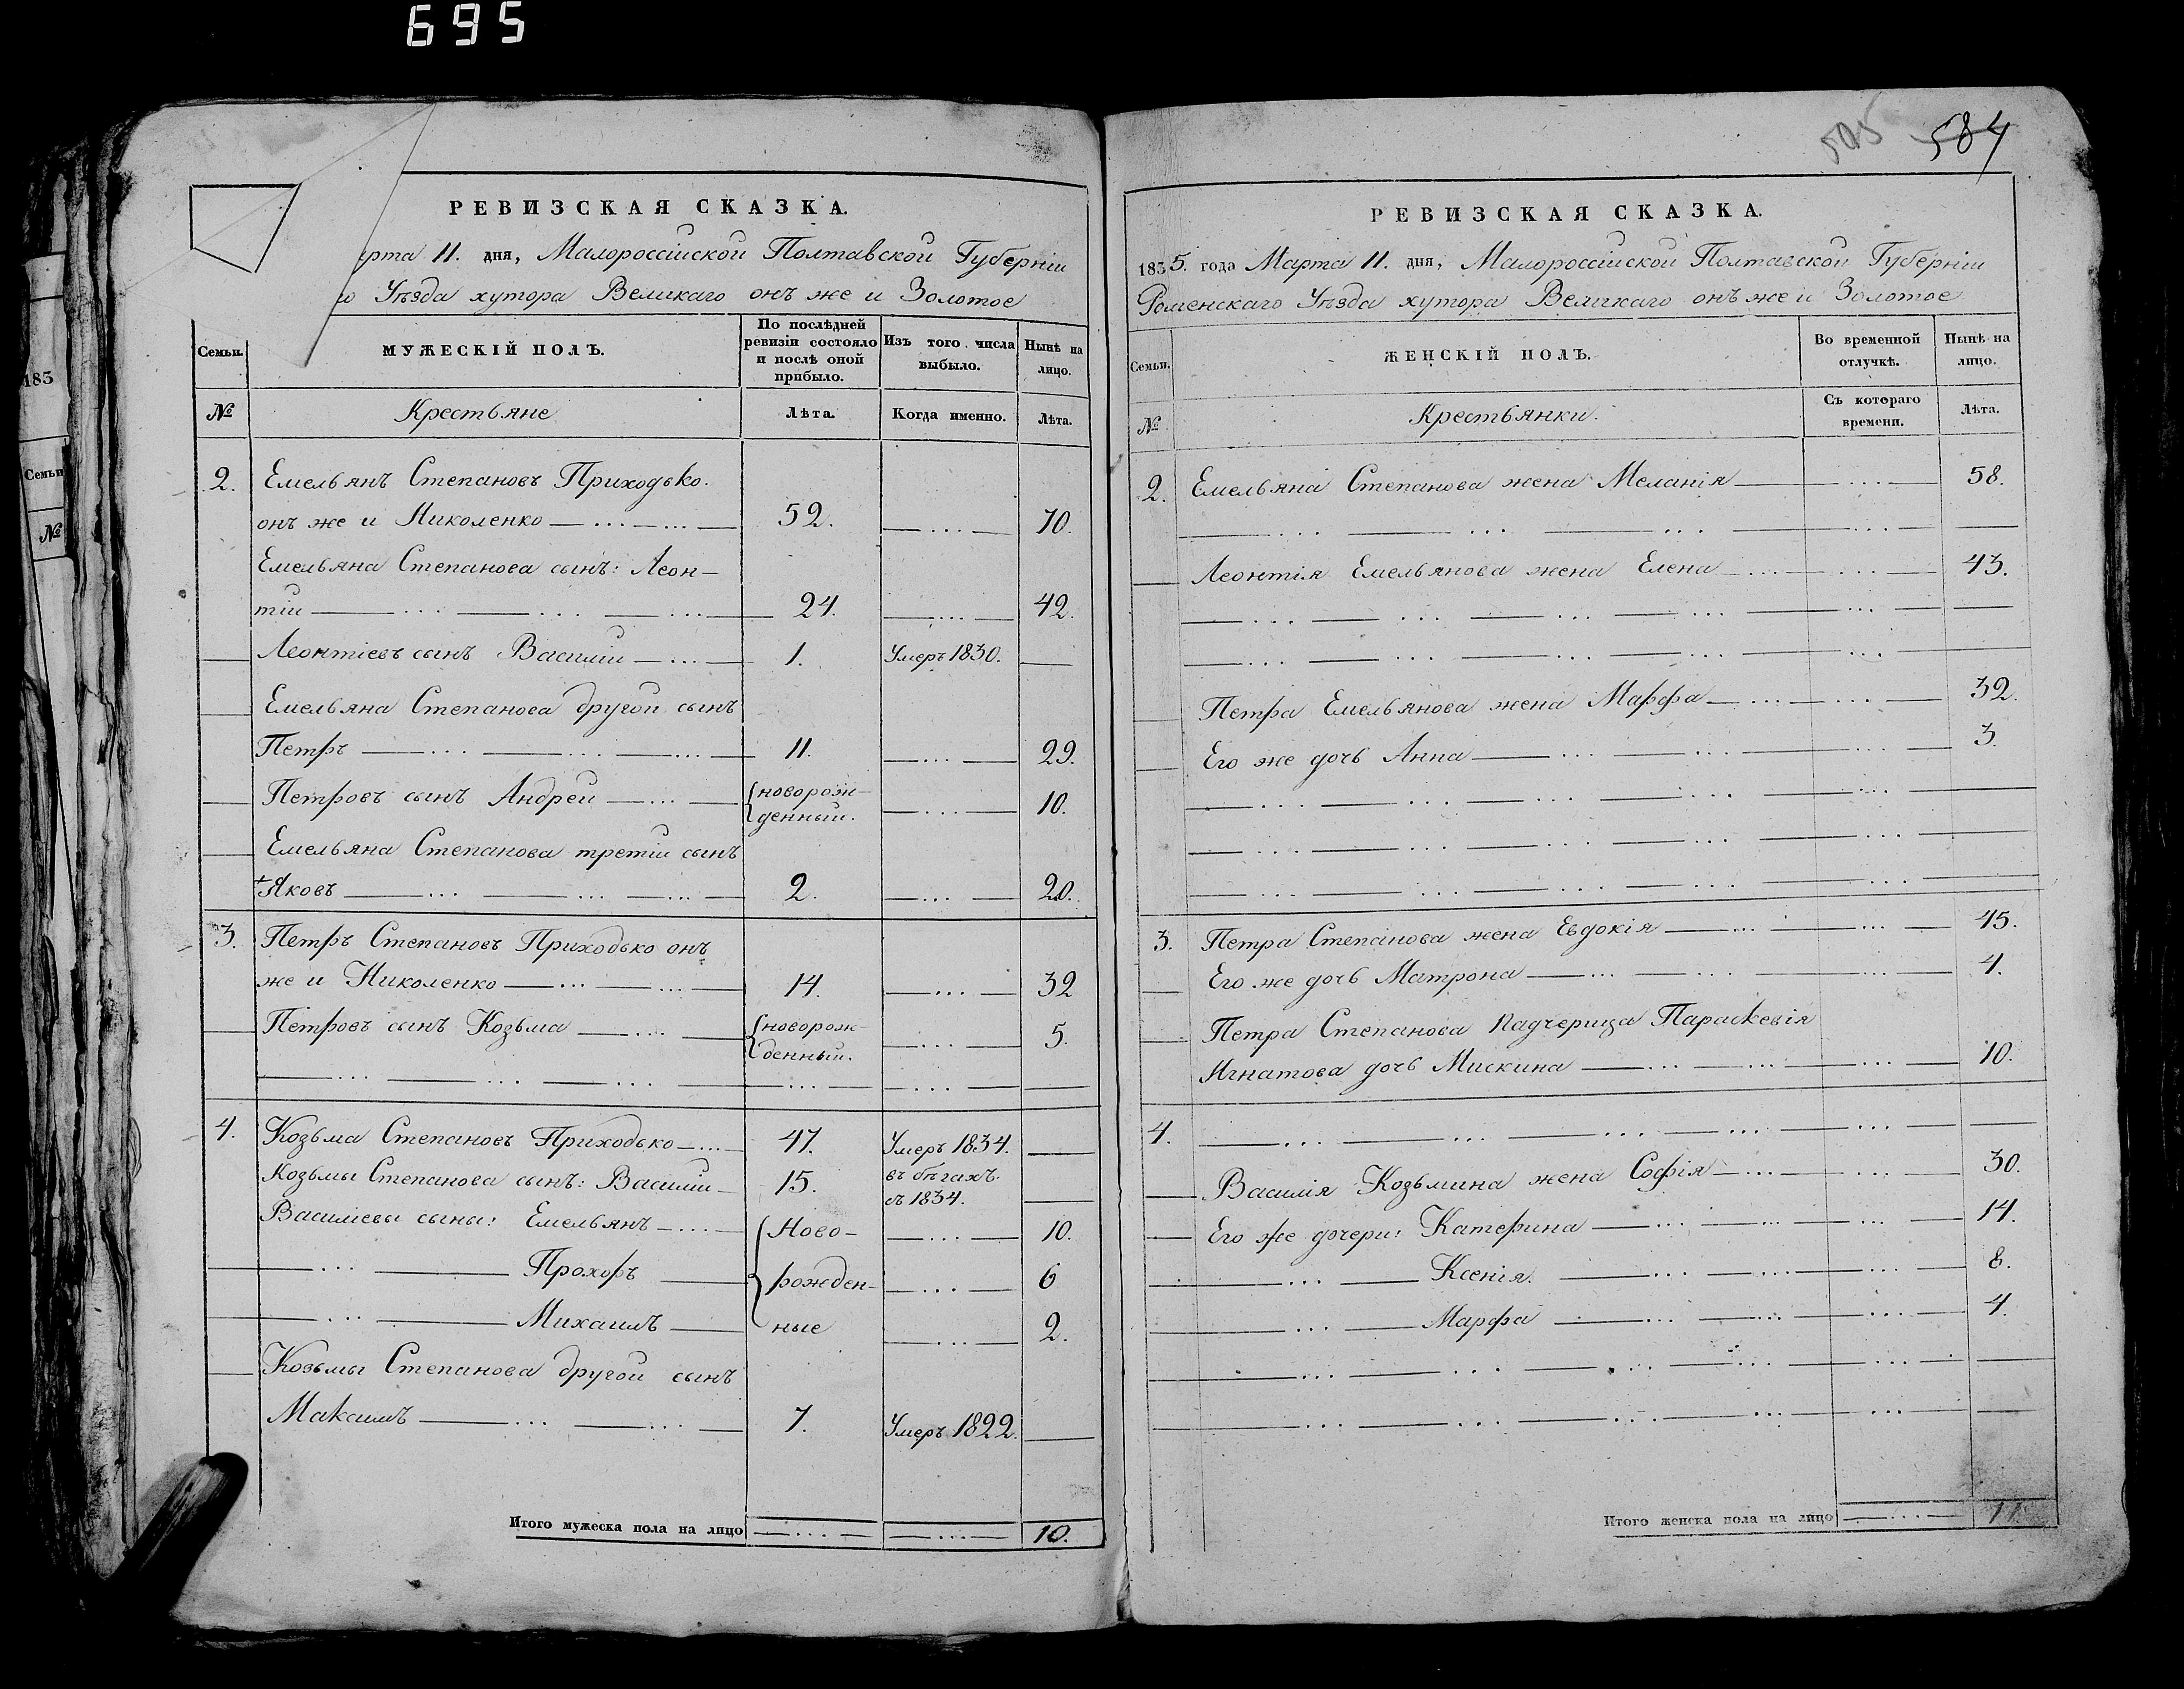 695
505 584
РЕВИЗСКАЯ СКАЗКА.
рта 11. дня, Малороссійской Полтавской Губерніи
о Уѣзда хутора Великаго онъ же и Золотое
Семьи.
МУЖЕСКІЙ ПОЛЪ.
По послѣдней ревизіи состояло и послѣ оной прибыло.
Изъ того числа выбыло.
Нынѣ на лицо.
№ Крестьяне Лѣта. Когда именно. Лѣта.
2. Емельянъ Степановъ Приходько.
онъ же и Николенко — ... — ... — 52. — ... — 70.
Емельяна Степанова сынъ: Леон-
тій — ... — ... — ... — 24. — ... — 42.
Леонтіевъ сынъ Василій — ... — 1. Умеръ 1830. —
Емельяна Степанова другой сынъ
Петръ — ... — ... — ... — 11. — ... — 29.
Петровъ сынъ Андрей — ... — новорож-
денный. — ... — 10.
Емельяна Степанова третій сынъ
+Яковъ — ... — ... — ... — 2. — ... — 20.
3. Петръ Степановъ Приходько онъ
же и Николенко — ... — ... — 14. — ... — 32
Петровъ сынъ Козьма — ... — новорож-
денный. — ... — 5.
4. Козьма Степановъ Приходько — ... — 47. Умеръ 1834. —
Козьмы Степанова сынъ: Василій — 15. въ бѣгахъ
съ 1834. —
Василіевы сыны: Емельянъ — ... — Ново- — ... — 10.
— ... — Прохоръ — рожден- — ... — 6
— ... — Михаилъ — ные — ... — 2.
Козьмы Степанова другой сынъ
Максимъ — ... — ... — 7. Умеръ 1822. —
Итого мужеска пола на лицо — ... — — ... — 10.
РЕВИЗСКАЯ СКАЗКА.
1835. года Марта 11. дня, Малороссійской Полтавской Губерніи
Роменскаго Уѣзда хутора Великаго онъ же и Золотое
Семьи.
ЖЕНСКІЙ ПОЛЪ.
Во временной отлучкѣ.
Нынѣ на лицо.
№ Крестьянки. Съ котораго времени. Лѣта.
2. Емельяна Степанова жена Меланія — ... — 58.
Леонтія Емельянова жена Елена — ... — ... — 43.
Петра Емельянова жена Марфа — ... — ... — 32.
Его же дочь Анна — ... — ... — ... — 3.
3. Петра Степанова жена Евдокія — ... — ... — 45.
Его же дочь Матрона — ... — ... — ... — 4.
Петра Степанова падчерица Параскевія
Игнатова дочь Мискина — ... — ... — ... — 10.
4. — ... — ... — ... — ... — ... —
Василія Козьмина жена Софія — ... — ... — 30.
Его же дочери: Катерина — ... — ... — ... — 14.
— ... — Ксенія. — ... — ... — ... — 8.
— ... — Марфа — ... — ... — ... — 4.
Итого женска пола на лицо — ... — 11
183
Семьи
№